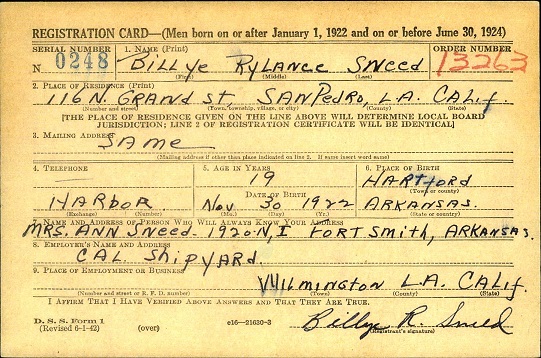 REGISTRATION CARD—(Men born on or after January 1, 1922 and on or before June 30, 1924)
SERIAL NUMBER 1. NAME (Print) ORDER NUMBER
N 0248 BILLYE RYLANCE SNEED 13263
(First) (Middle) (Last)
2. PLACE OF RESIDENCE (Print)
116 N. GRAND ST, SAN PEDRO, L.A. CALIF.
(Number and street) (Town, township, village, or city) (County) (State)
[THE PLACE OF RESIDENCE GIVEN ON THE LINE ABOVE WILL DETERMINE LOCAL BOARD
JURISDICTION; LINE 2 OF REGISTRATION CERTIFICATE WILL BE IDENTICAL]
3. MAILING ADDRESS
SAME
(Mailing address if other than place indicated on line 2. If same insert word same)
4. TELEPHONE 5. AGE IN YEARS 6. PLACE OF BIRTH
19 HARTFORD
DATE OF BIRTH (Town or county)
HARBOR Nov 30 1922 ARKANSAS.
(Exchange) (Number) (Mo.) (Day) (Yr.) (State or country)
7. NAME AND ADDRESS OF PERSON WHO WILL ALWAYS KNOW YOUR ADDRESS
MRS. ANN SNEED. 1920-N, I FORT SMITH, ARKANSAS.
8. EMPLOYER'S NAME AND ADDRESS
CAL ShipYARD.
9. PLACE OF EMPLOYMENT OR BUSINESS
WILMINGTON L.A. CALIF.
(Number and street or R. F. D. number) (Town) (County) (State)
I AFFIRM THAT I HAVE VERIFIED ABOVE ANSWERS AND THAT THEY ARE TRUE.
D. S. S. Form 1
(Revised 6-1-42) (over) e16—21630-3 Billye R. Sneed
(Registrant's signature)